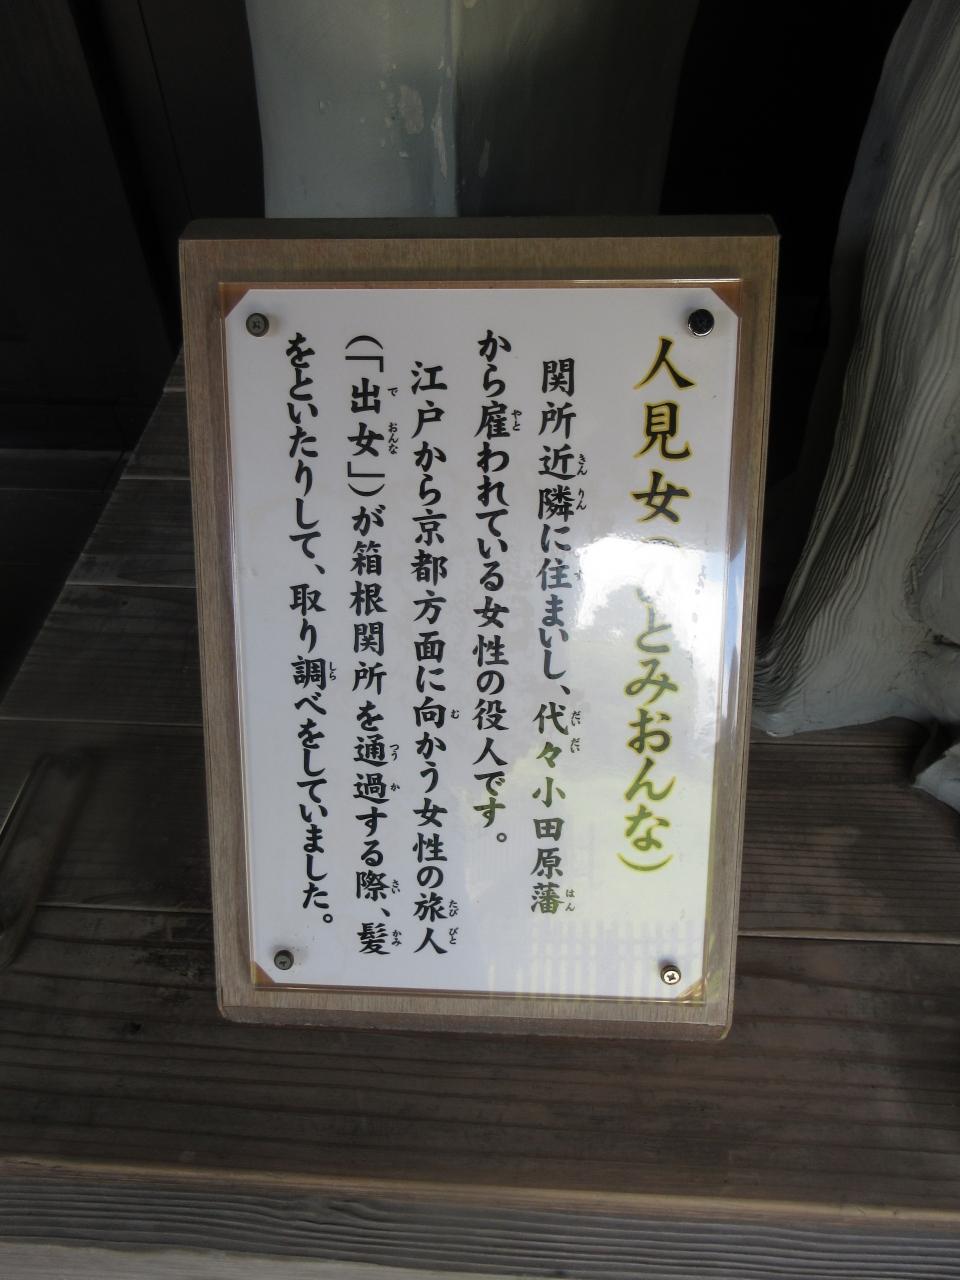 人見女（ひとみおんな）
関所近隣に住まいし、代々小田原藩
から雇われている女性の役人です。
江戸から京都方面に向かう女性の旅人
（「出女」）が箱根関所を通過する際、髪
をといたりして、取り調べをしていました。